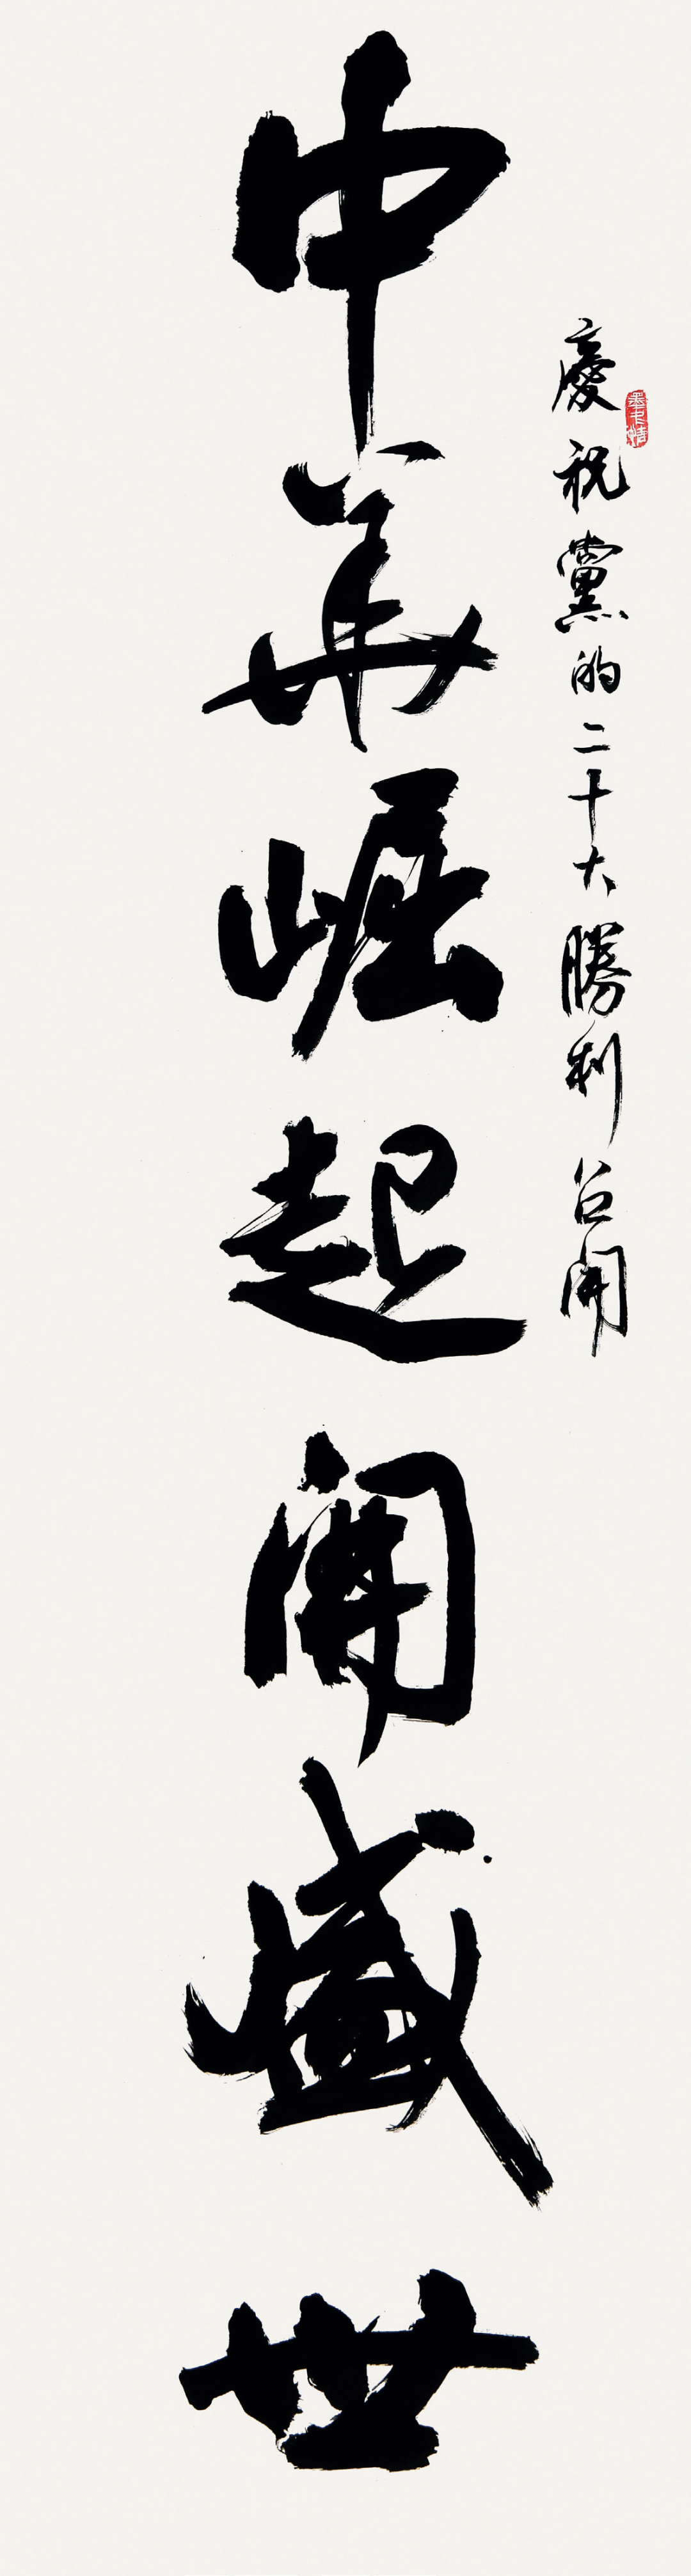 慶祝黨的二十大勝利召開
中華崛起開盛世